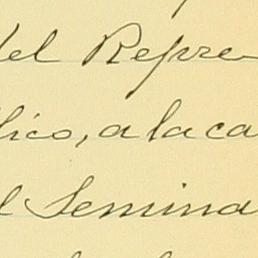 del Repre
lico, a la ca
l Semina